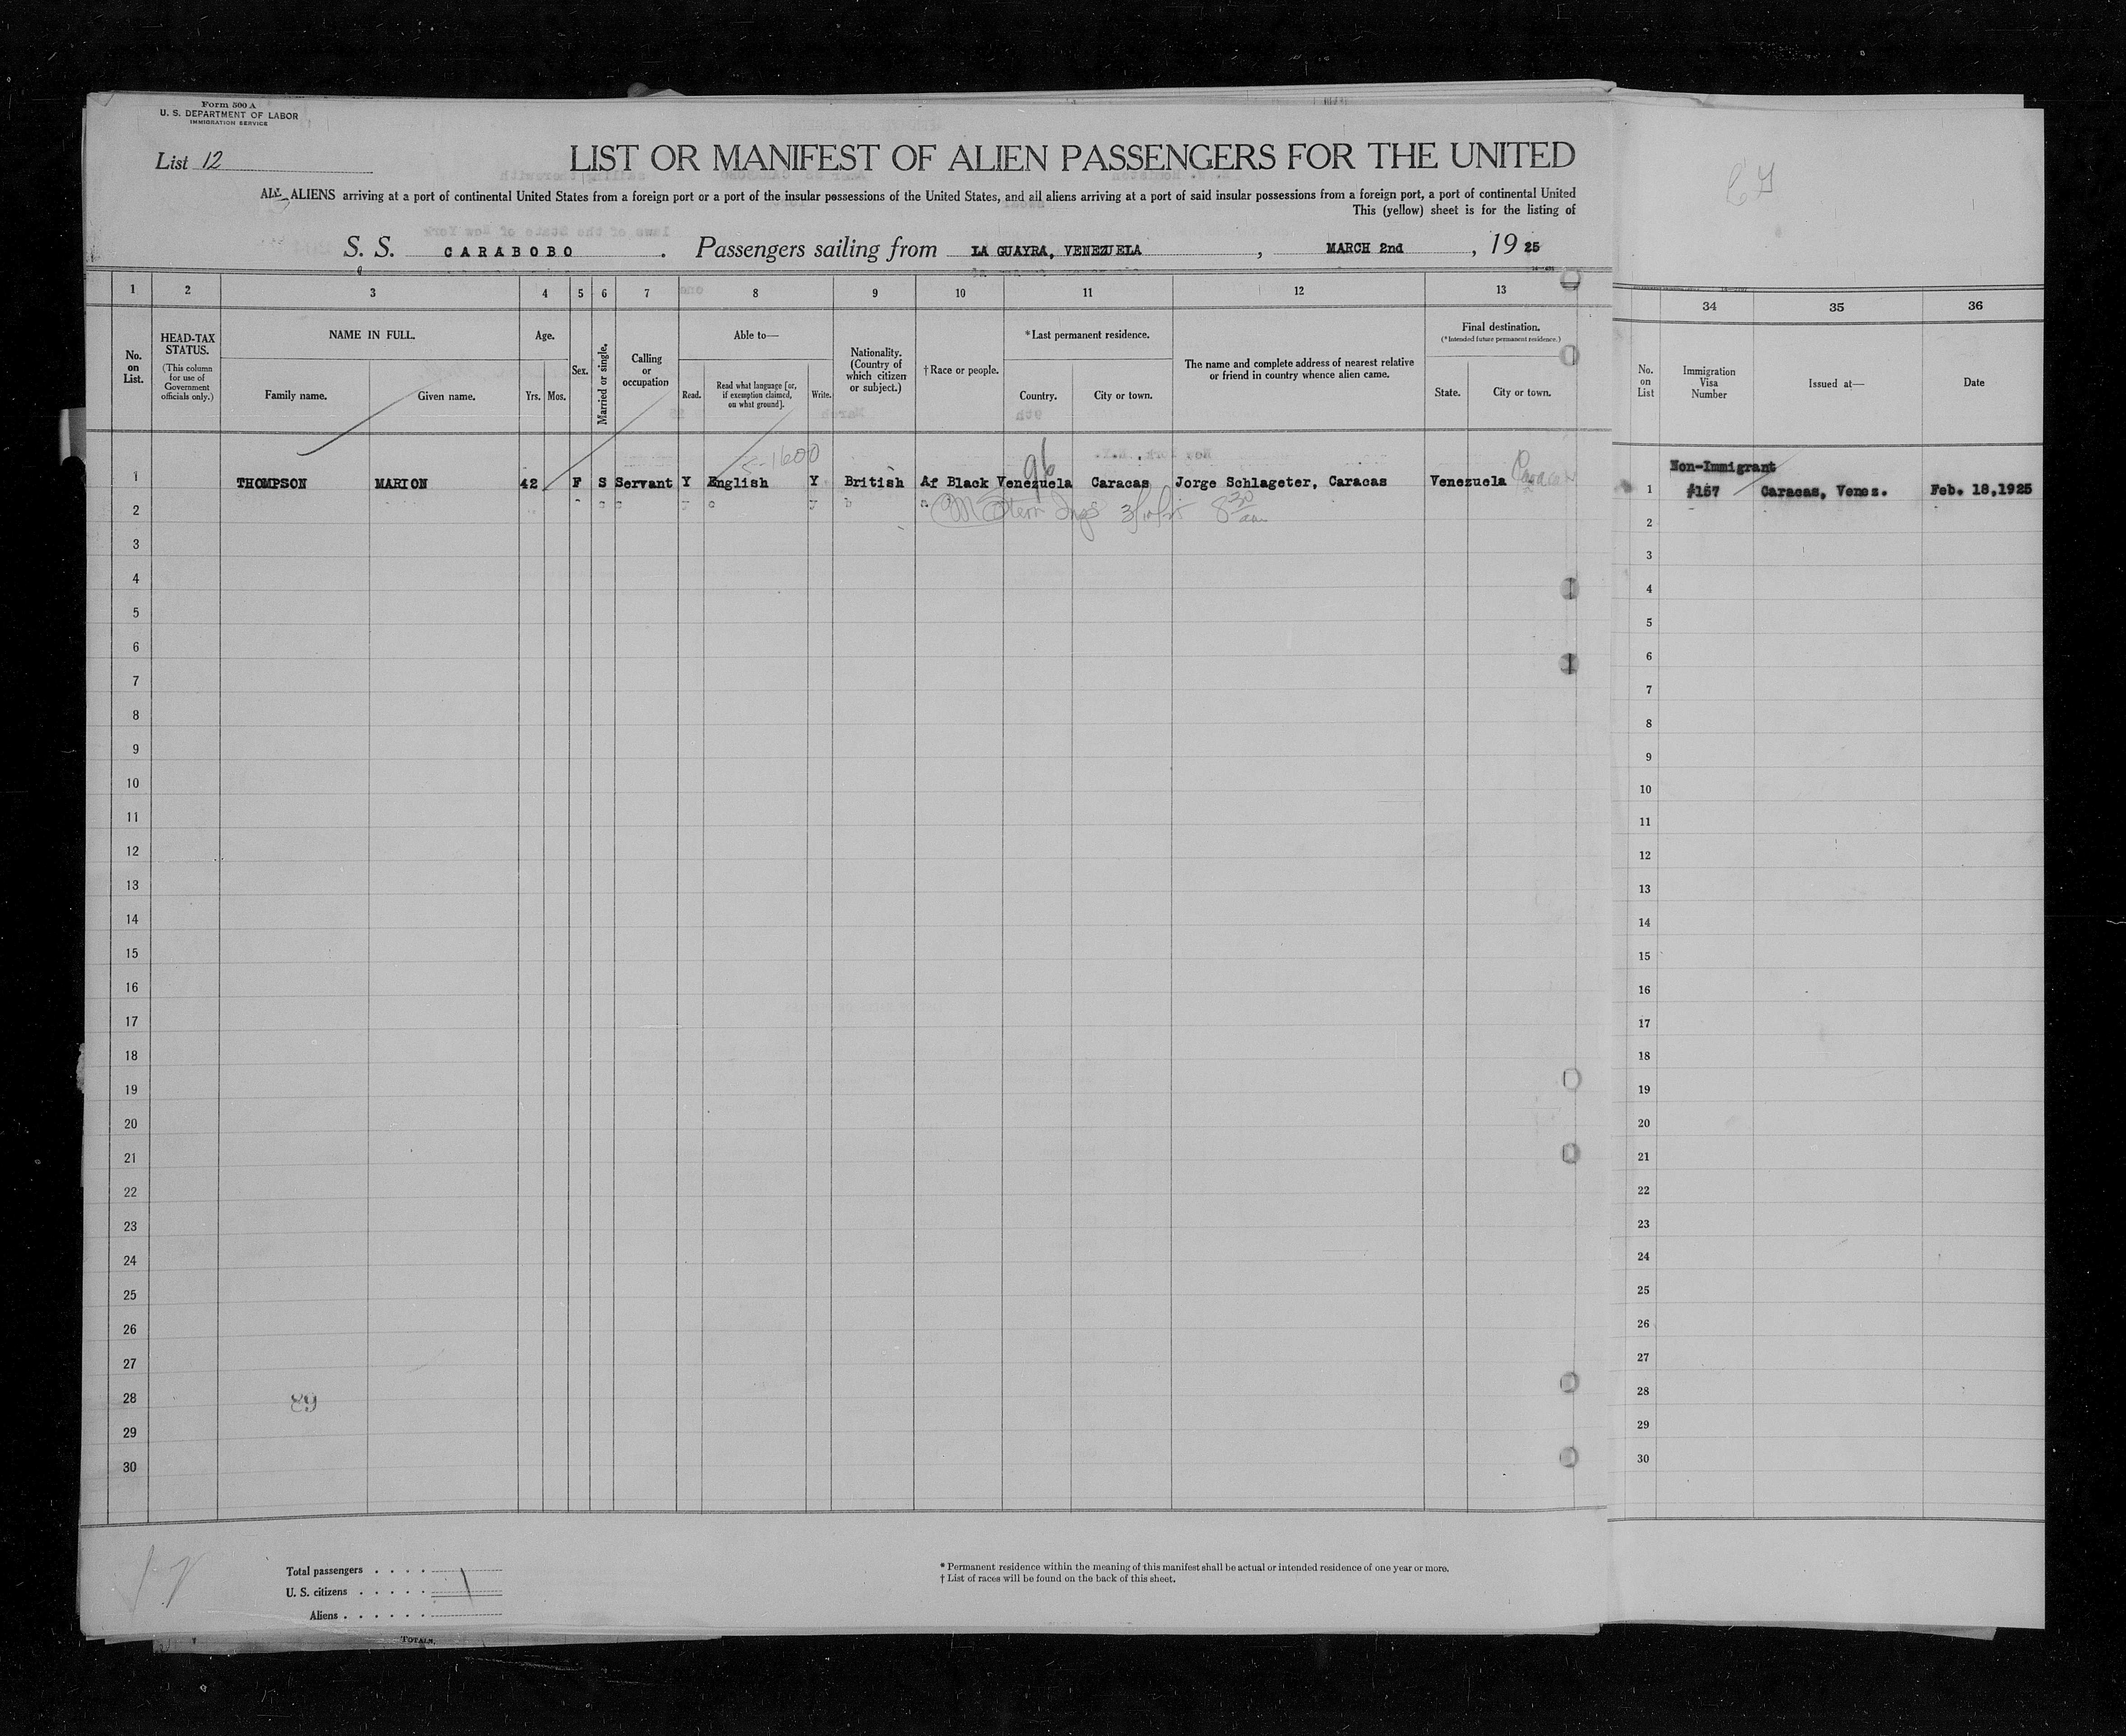 Form 500 A
U. S. DEPARTMENT OF LABOR
IMMIGRATION SERVICE
List 12
LIST OR MANIFEST OF ALIEN PASSENGERS FOR THE UNITED
ALL ALIENS arriving at a port of continental United States from a foreign port or a port of the insular possessions of the United States, and all aliens arriving at a port of said insular possessions from a foreign port, a port of continental United
This (yellow) sheet is for the listing of
S. S. CARABOBO. Passengers sailing from LA GUAYRA, VENEZUELA, MARCH 2nd, 1925
1 2 3 4 5 6 7 8 9 10 11 12 13
No. on List.
HEAD-TAX STATUS.
(This column for use of Government officials only.)
NAME IN FULL.
Family name. Given name.
Age.
Yrs. Mos.
Sex.
Married or single.
Calling or occupation
Able to—
Read. Read what language [or, if exemption claimed, on what ground]. Write.
Nationality. (Country of which citizen or subject.)
† Race or people.
* Last permanent residence.
Country. City or town.
The name and complete address of nearest relative or friend in country whence alien came.
Final destination.
(* Intended future permanent residence.)
State. City or town.
34 35 36
No. on List
Immigration Visa Number
Issued at—
Date
5-1600
96
1 THOMPSON MARION 42 F S Servant Y English Y British Af Black Venezuela Caracas Jorge Schlageter, Caracas Venezuela Caracas
Non-Immigrant
1 #157 Caracas, Venez. Feb. 18,1925
2
8 30 am
3
4
5
6
7
8
9
10
11
12
13
14
15
16
17
18
19
20
21
22
23
24
25
26
27
28
29
30
2
3
4
5
6
7
8
9
10
11
12
13
14
15
16
17
18
19
20
21
22
23
24
25
26
27
28
29
30
Total passengers . . . .
U. S. citizens . . . . .
Aliens . . . . . .
* Permanent residence within the meaning of this manifest shall be actual or intended residence of one year or more.
† List of races will be found on the back of this sheet.
TOTALS,